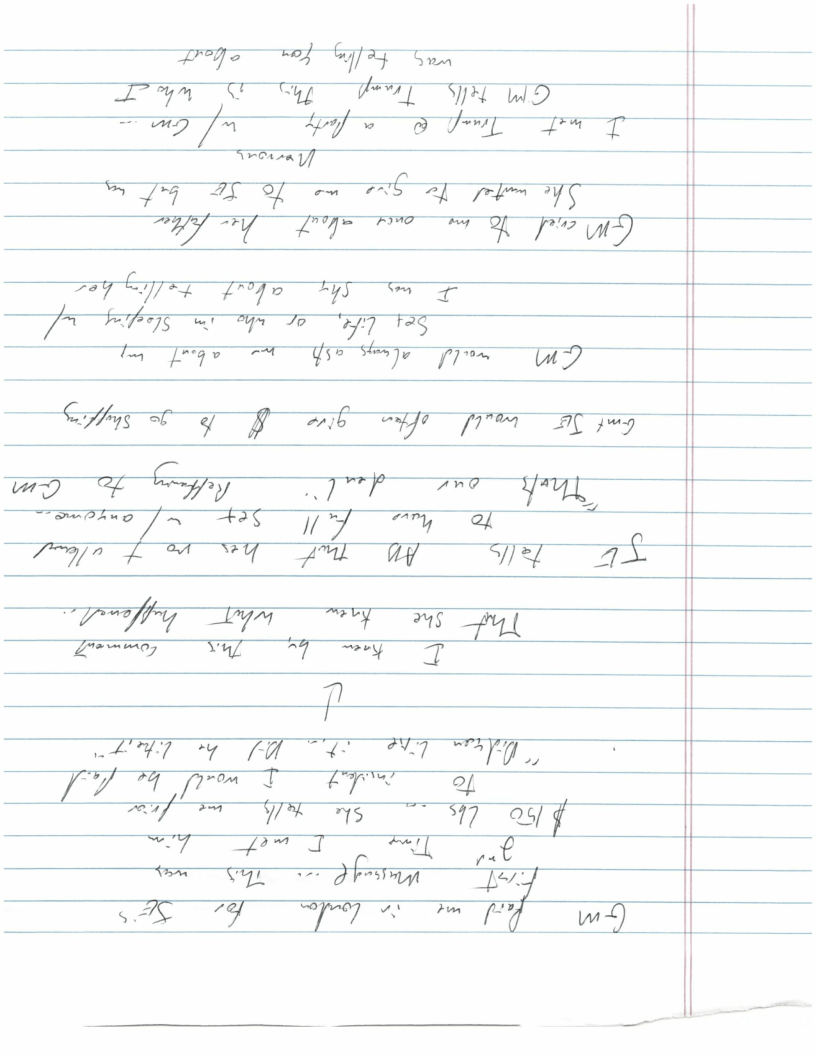 GM paid me in london for JE's
first massage ... This was
2nd Time I met him
$150 Lbs ... She tells me prior
to incident I would be paid
"Did you like it ... Did he like it"
↓
I knew by this comment
That she knew what happened..
JE tells AD that hes not allowed
to have full sex w/ anyone...
"Thats our deal" Reffering to GM
GM + JE would often give $ to go shopping
GM would always ask me about my
Sex life, or who im sleeping w/
I was shy about telling her
GM cried to me once about her father
She wanted to give me to JE but was
Nervous
I met Trump @ a party w/ GM ...
GM tells Trump This is who I
was telling you about